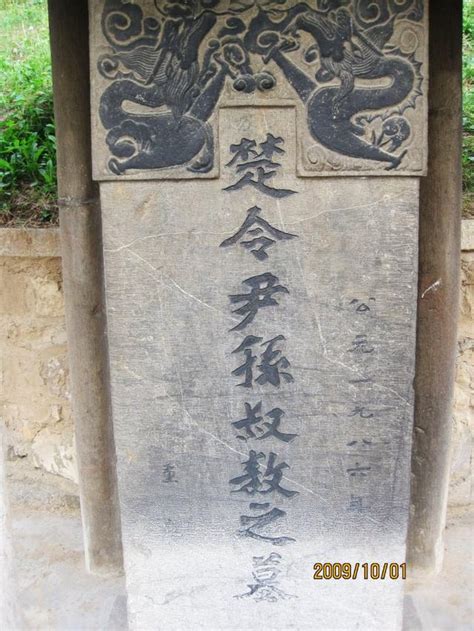 公元一九八六年
楚令尹孫叔敖之墓
2009/10/01